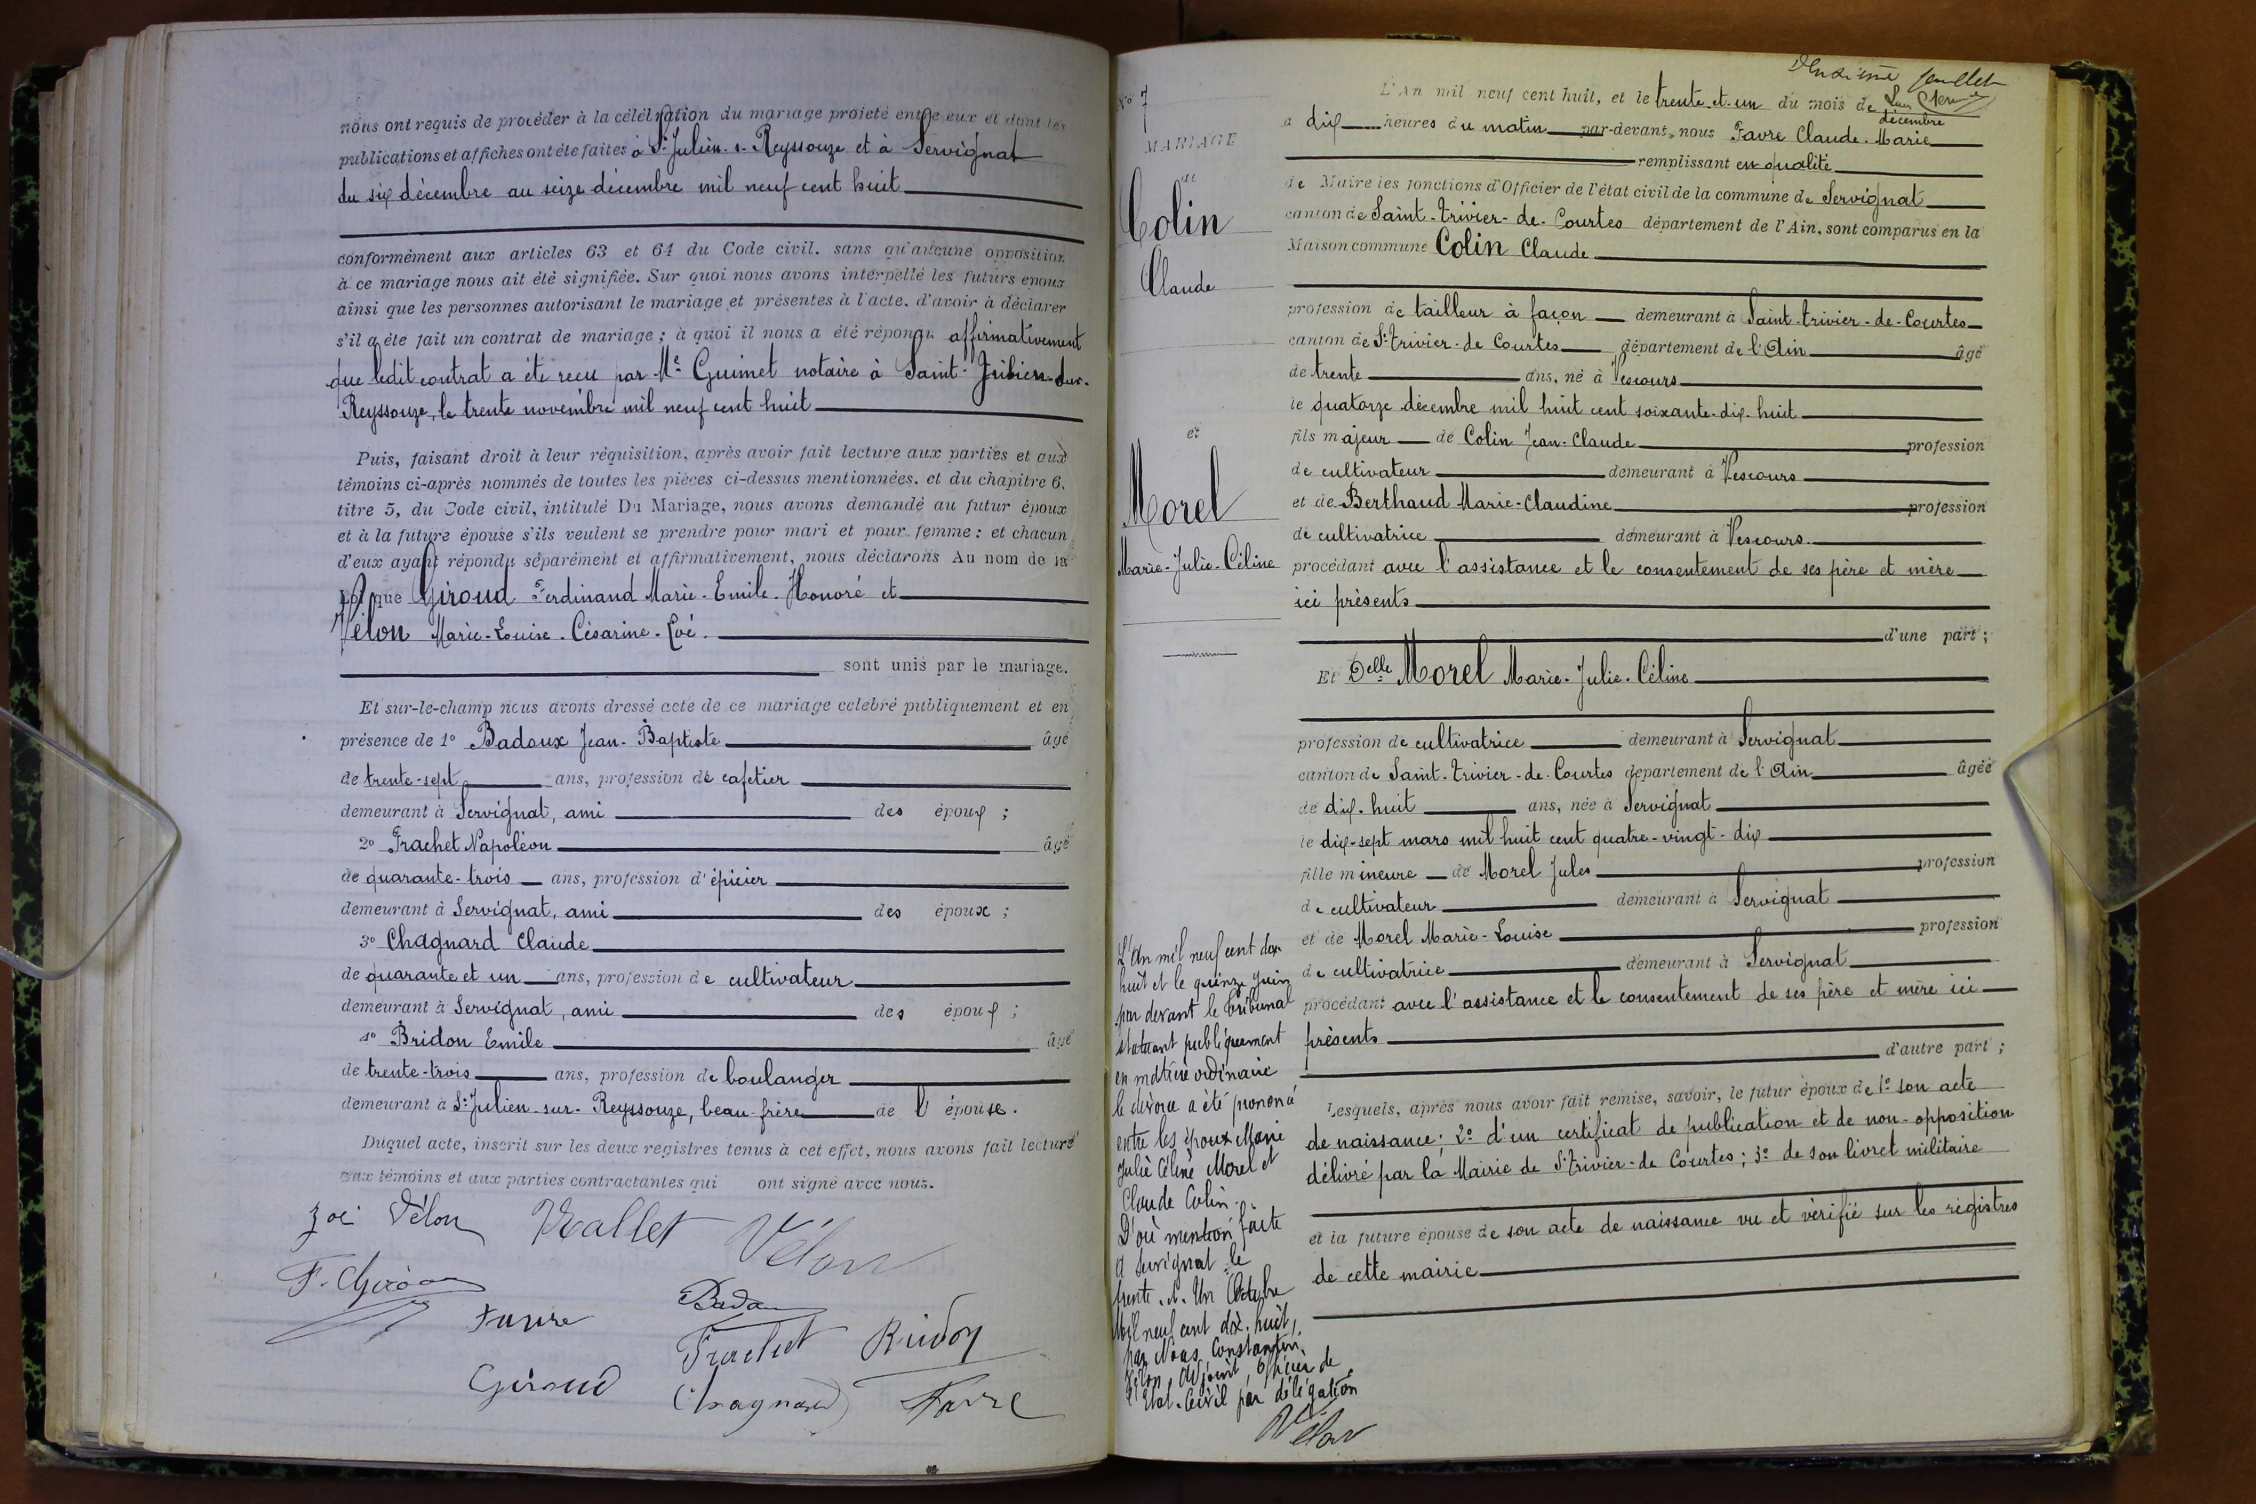 nous ont requis de procéder à la célébration du mariage projeté entre eux et dont les
publications et affiches ont été faites à St Julien-s-Reyssouze et à Servignat
du six décembre au seize décembre mil neuf cent huit
conformément aux articles 63 et 64 du Code civil. sans qu'aucune opposition
à ce mariage nous ait été signifiée. Sur quoi nous avons interpellé les futurs epoux
ainsi que les personnes autorisant le mariage et présentes à l'acte. d'avoir à déclarer
s'il a été fait un contrat de mariage ; à quoi il nous a été répondu affirmativement
que ledit contrat a été reçu par Me Guimet notaire à Saint-Julien-sur-
Reyssouze, le trente novembre mil neuf cent huit
Puis, faisant droit à leur réquisition, après avoir fait lecture aux parties et aux
témoins ci-après nommés de toutes les pièces ci-dessus mentionnées. et du chapitre 6,
titre 5, du Code civil, intitulé Du Mariage, nous avons demandé au futur époux
et à la future épouse s'ils veulent se prendre pour mari et pour femme : et chacun
d'eux ayant répondu séparément et affirmativement, nous déclarons Au nom de la
loi que Giroud Ferdinand Marie-Emile-Honoré et
Vélon Marie-Louise-Césarine-Zoé.
sont unis par le mariage.
Et sur-le-champ nous avons dressé acte de ce mariage celebré publiquement et en
présence de 1° Badoux Jean-Baptiste âgé
de trente-sept ans, profession de cafetier
demeurant à Servignat, ami des époux ;
2° Frachet Napoléon âgé
de quarante-trois ans, profession d'épicier
demeurant à Servignat, ami des époux ;
3° Chagnard Claude
de quarante et un ans, profession de cultivateur
demeurant à Servignat, ami des époux ;
4° Bridon Emile âgé
de trente-trois ans, profession de boulanger
demeurant à St Julien-sur-Reyssouze, beau-frère de l'épouse.
Duquel acte, inscrit sur les deux registres tenus à cet effet, nous avons fait lecture
aux témoins et aux parties contractantes qui ont signé avec nous.
Zoé Vélon Vallet Vélon
F. Giroud
Favre Badoux
Frachet Bridon
Giroud Chagnard Favre
feuillet
N° 7
MARIAGE
de
Colin
Claude
et
Morel
Marie-Julie-Céline
L'An mil neuf cent huit, et le trente-et-un du mois de décembre
à dix heures du matin par-devant nous Favre Claude-Marie
remplissant en qualité
de Maire les fonctions d'Officier de l'état civil de la commune de Servignat
canton de Saint-Trivier-de-Courtes département de l'Ain, sont comparus en la
Maison commune Colin Claude
profession de tailleur à façon demeurant à Saint-Trivier-de-Courtes
canton de St Trivier-de Courtes département de l'Ain âgé
de trente ans, né à Vescours
le quatorze décembre mil huit cent soixante-dix-huit
fils majeur de Colin Jean-Claude profession
de cultivateur demeurant à Vescours
et de Berthaud Marie-Claudine profession
de cultivatrice demeurant à Vescours.
procédant avec l'assistance et le consentement de ses père et mère
ici présents
d'une part ;
Et Delle Morel Marie-Julie-Céline
profession de cultivatrice demeurant à Servignat
canton de Saint-Trivier-de-Courtes département de l'Ain âgée
de dix-huit ans, née à Servignat
le dix-sept mars mil huit cent quatre-vingt-dix
fille mineure de Morel Jules profession
de cultivateur demeurant à Servignat
et de Morel Marie-Louise profession
de cultivatrice demeurant à Servignat
procédant avec l'assistance et le consentement de ses père et mère ici
présents
d'autre part ;
Lesquels, après nous avoir fait remise, savoir, le futur époux de 1° son acte
de naissance ; 2° d'un certificat de publication et de non-opposition
délivré par la Mairie de St Trivier-de Courtes ; 3° de son livret militaire
et la future épouse de son acte de naissance vu et vérifié sur les registres
de cette mairie
L'An mil neuf cent dix
huit et le quinze Juin
par devant le Tribunal
statuant publiquement
en matière ordinaire
le divorce a été prononcé
entre les époux Marie
Julie Céline Morel et
Claude Colin.
D'où mention faite
à Servignat le
trente-et-Un Octobre
Mil neuf cent dix-huit,
par Nous Constantin
Vélon, Adjoint, Officier de
l'Etat-Civil par délégation
Vélon